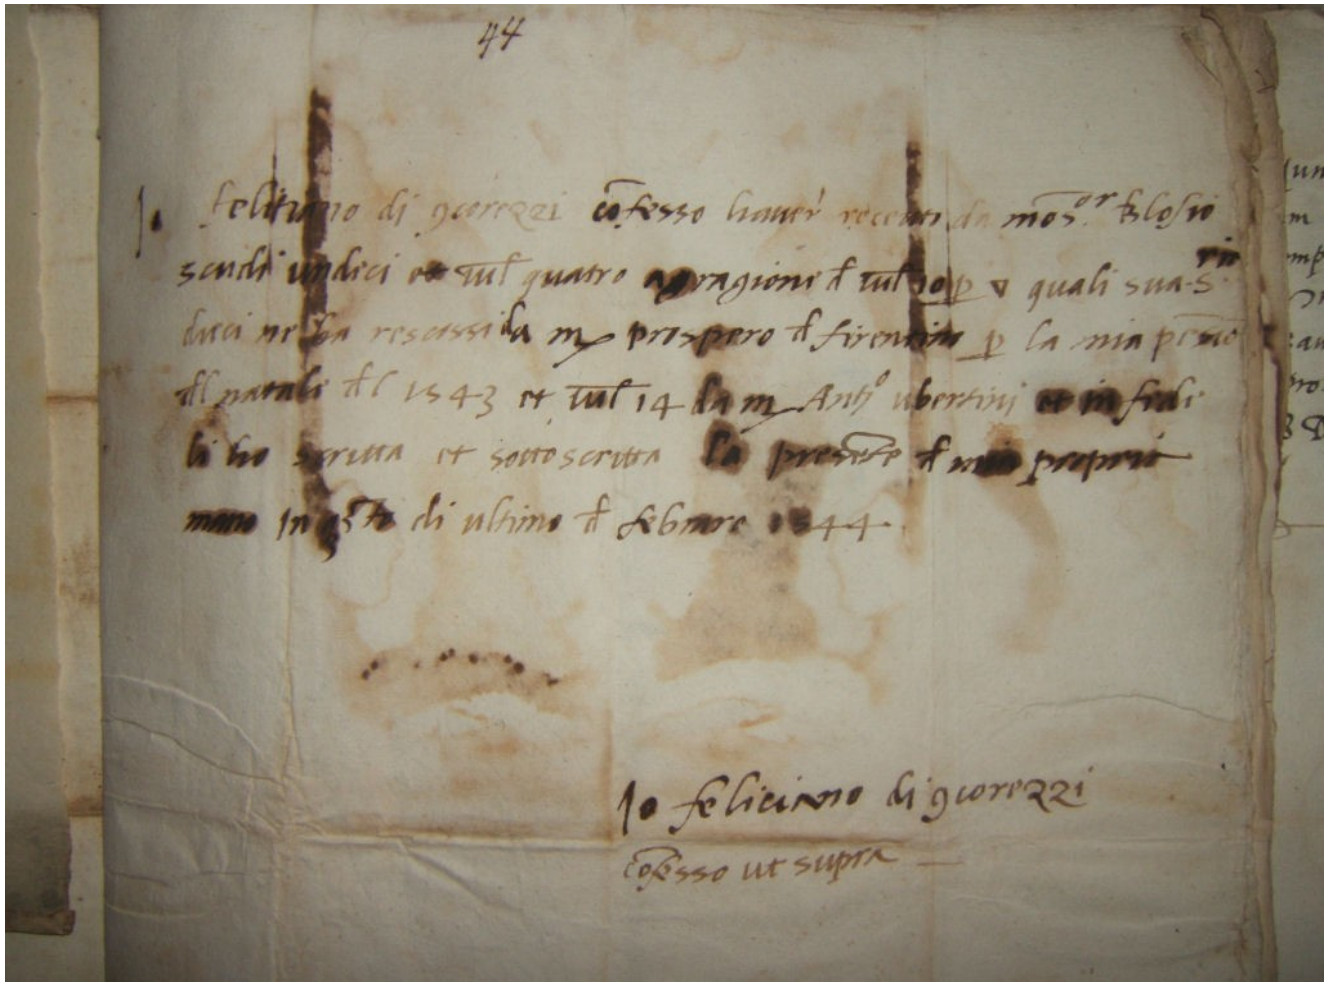 44
Io felitiano di gcorezzi cōfesso haver recenti da mōs.or Blosio
scudi undeci et Iul quatro a ragione d Iul 10 p ▽ quali sua S.ria
dieci ne ha rescossi da m prospero d firenzuola p la mia pēsiōe
dl natale dl 1543 et Iul 14 da m Antº ubertini et in fede
li ho scritta et sottoscritta la presēte d mia propria
mano In q̄sto di ultimo d febraro 1544
Io feliciano di gcorezzi
cōfesso ut supra